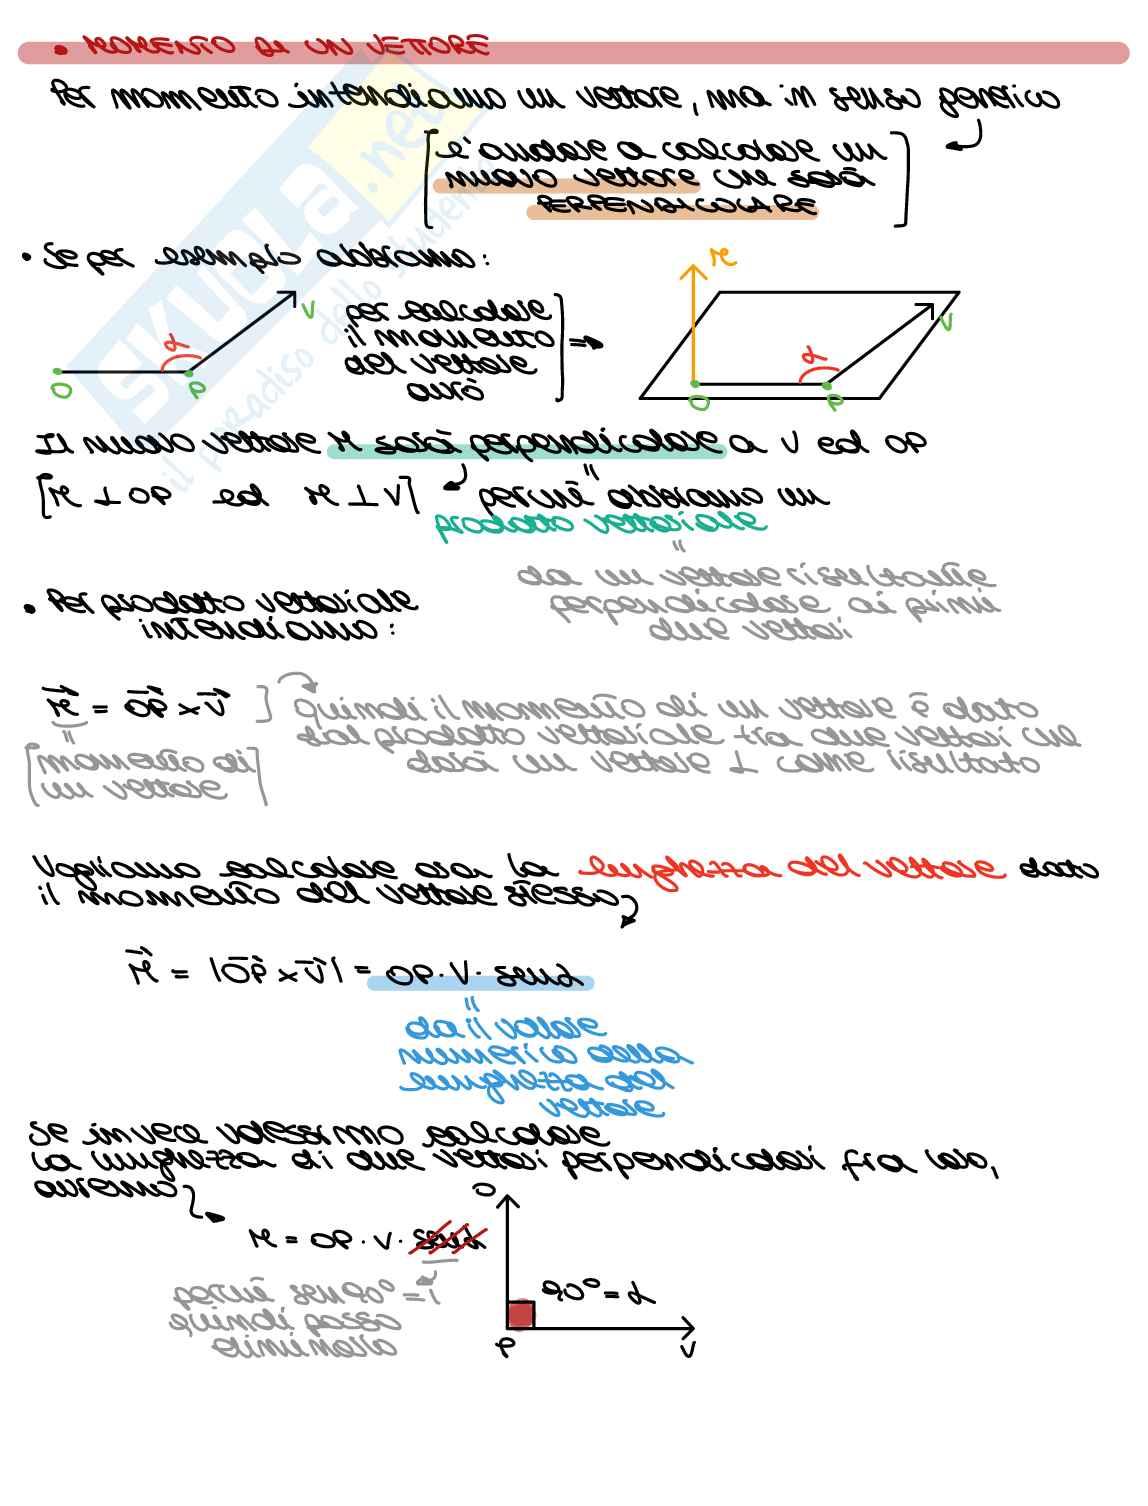 • MOMENTO DI UN VETTORE
Per momento intendiamo un vettore, ma in senso generico
è andare a calcolare un
nuovo vettore che sarà
PERPENDICOLARE
• Se per esempio abbiamo:
M
V
α
O
P
per calcolare
il momento
del vettore
avrò
V
α
O
P
Il nuovo vettore M sarà perpendicolare a V ed OP
[M ⊥ OP ed M ⊥ V]
perché abbiamo un
prodotto vettoriale
da un vettore risultante
perpendicolare ai primi
due vettori
• Per prodotto vettoriale
intendiamo:
M = OP × V
quindi il momento di un vettore è dato
dal prodotto vettoriale tra due vettori che
darà un vettore ⊥ come risultato
[momento di
un vettore]
Vogliamo calcolare ora la lunghezza del vettore dato
il momento del vettore stesso
M = |OP × V| = OP · V · senα
da il valore
numerico della
lunghezza del
vettore
Se invece volessimo calcolare
la lunghezza di due vettori perpendicolari fra loro,
avremo
O
M = OP · V · senα
perché sen90° = 1
quindi posso
eliminarlo
90° = α
P
V
SKUOLA.net
il paradiso dello studente